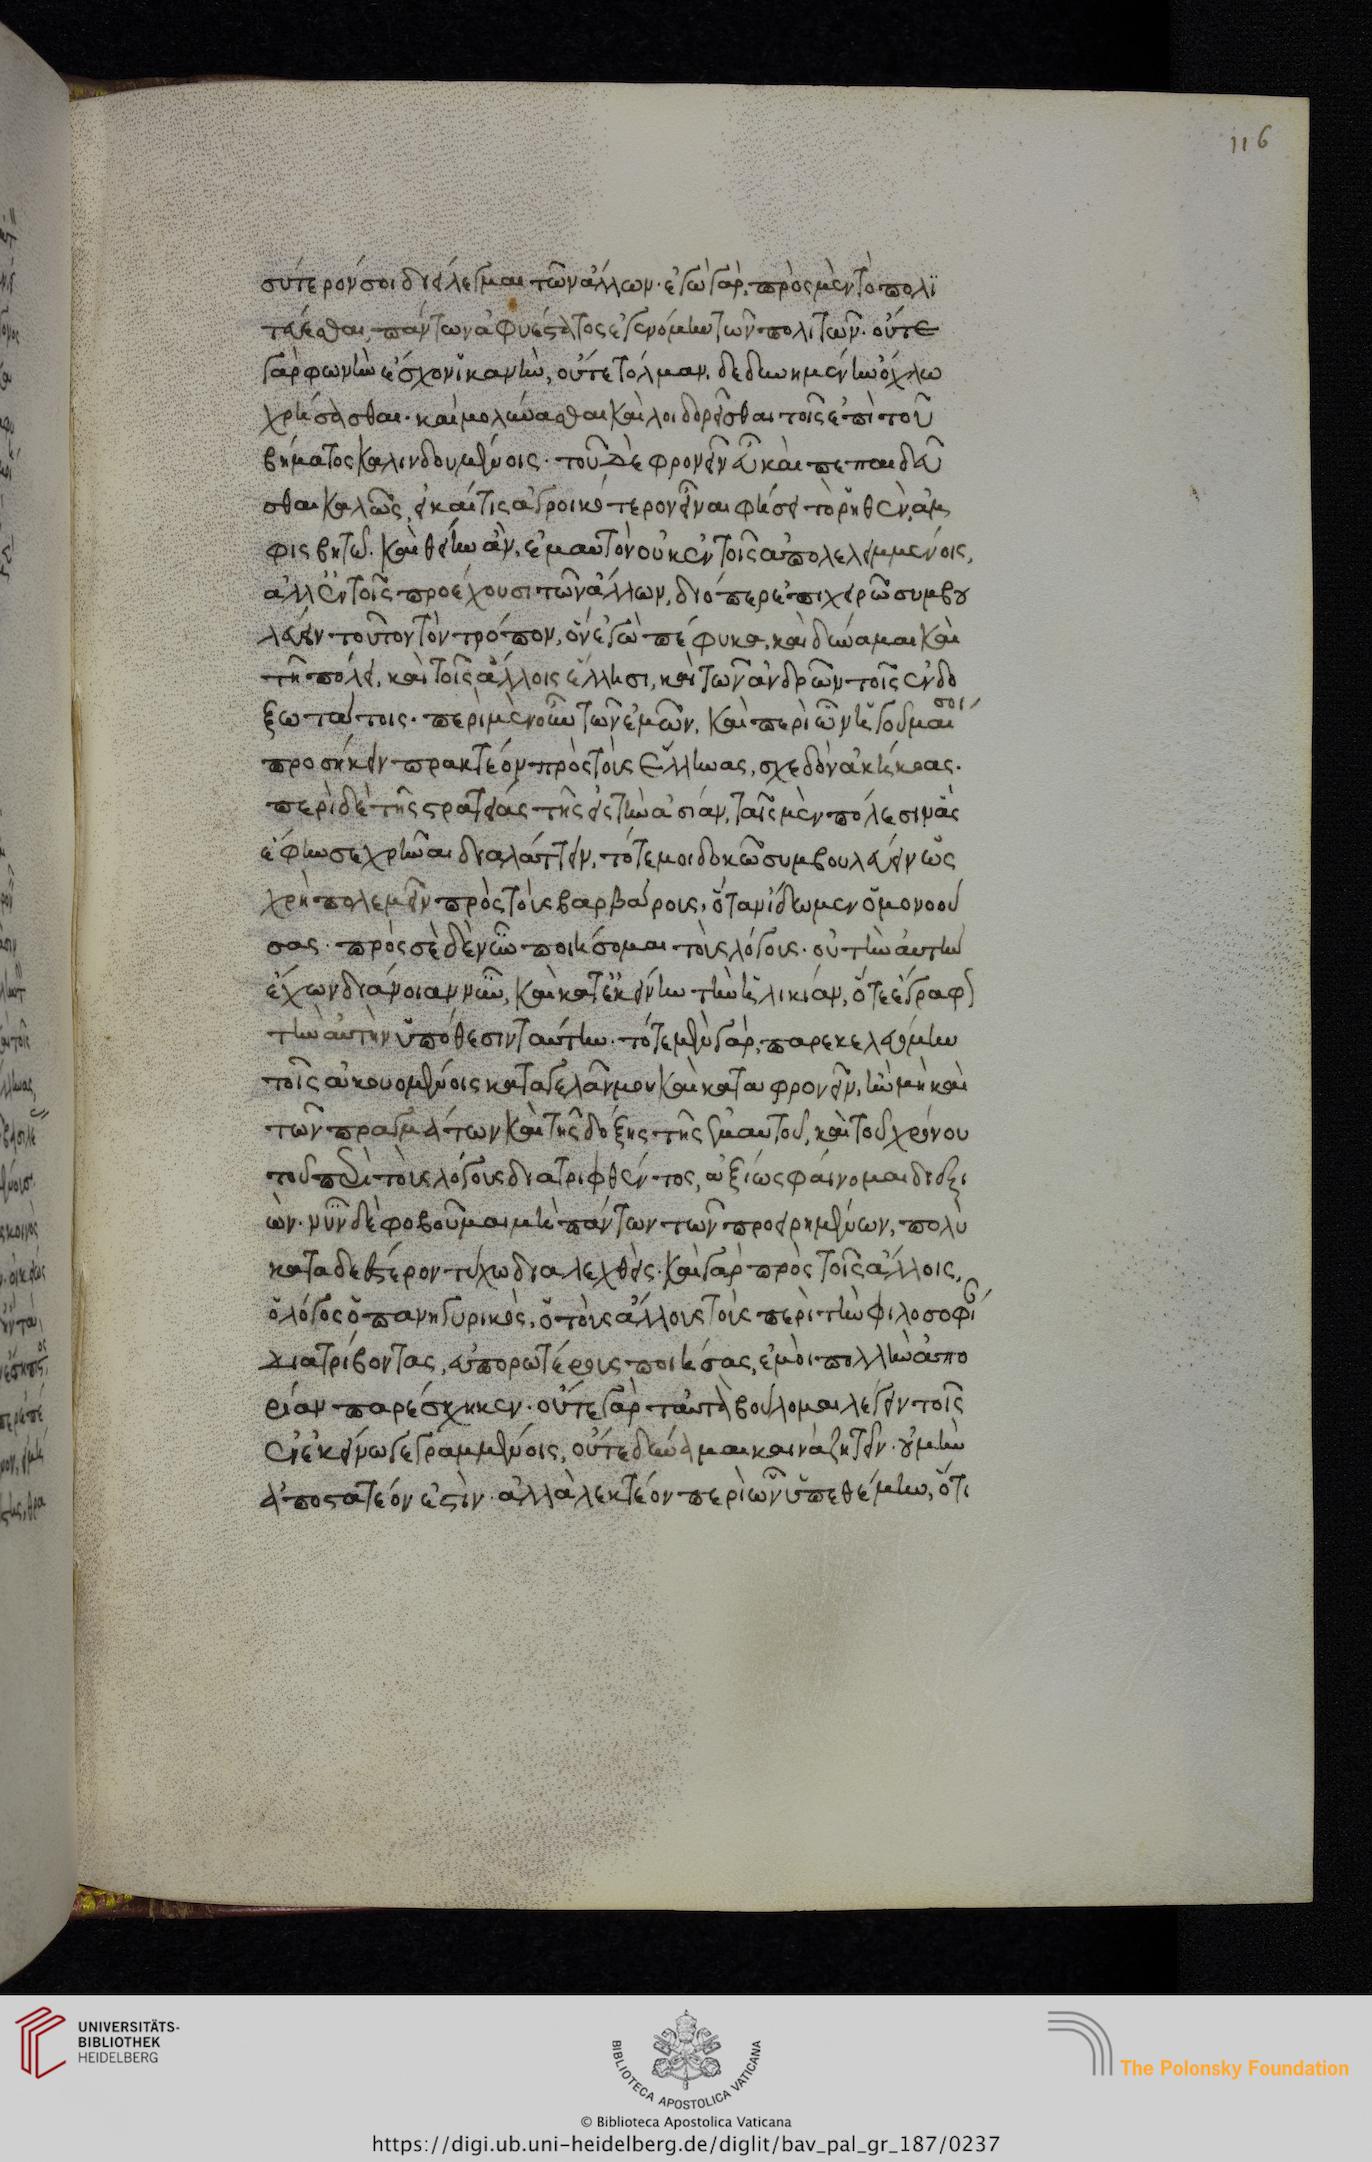 116
σύτερόν σοι διείλεγμαι τῶν ἄλλων· ἐγὼ γὰρ, πρὸς μὲν τὸ πολι
τεύεσθαι, πάντων ἀφυέστατος ἐγενόμην τῶν πολιτῶν· οὔτε
γὰρ φωνὴν ἔσχον ἱκανὴν, οὔτε τόλμαν, δυναμένην ὄχλω
χρήσασθαι· καὶ μολύνεσθαι καὶ λοιδορεῖσθαι τοῖς ἐπὶ τοῦ
βήματος καλινδουμένοις· τοῦ δὲ φρονεῖν εὖ καὶ πεπαιδεῦ
σθαι καλῶς, εἰ καί τις ἀγροικότερον εἶναι φήσει τὸ ῥηθὲν, ἀμ
φισβητῶ. καὶ θείην ἂν, ἐμαυτὸν οὐκ ἐν τοῖς ἀπολελειμμένοις,
ἀλλ' ἐν τοῖς προέχουσι τῶν ἄλλων, διόπερ ἐπιχειρῶ συμβου
λεύειν τοῦτον τὸν τρόπον, ὃν ἐγὼ πέφυκα, καὶ δύναμαι καὶ
τῇ πόλει, καὶ τοῖς ἄλλοις ἕλλησι, καὶ τῶν ἀνδρῶν τοῖς ἐνδο
ξωτάτοις· περὶ μὲν οὖν τῶν ἐμῶν, καὶ περὶ ὧν ἡγοῦμαί σοι
προσήκειν πρακτέον πρὸς τοὺς Ἕλληνας, σχεδὸν ἀκήκοας·
περὶ δὲ τῆς στρατείας τῆς εἰς τὴν ἀσίαν, ταῖς μὲν πόλεσιν ἃς
ἔφην σε χρῆναι διαλάττειν, τότε μοι δοκῶ συμβουλεύειν ὡς
χρὴ πολεμεῖν πρὸς τοὺς βαρβάρους, ὅταν ἴδωμεν ὁμονοού
σας· πρὸς σὲ δὲ νῦν ποιήσομαι τοὺς λόγους· οὐ τὴν αὐτὴν
ἔχων διάνοιαν νῦν, καὶ κατ' ἐκείνην τὴν ἡλικίαν, ὅτε ἔγραφον
τὴν αὐτὴν ὑπόθεσιν ταύτην· τότε μὲν γὰρ, παρεκελευόμην
τοῖς ἀκουομένοις καταγελᾶν μου καὶ καταφρονεῖν, ἢν μὴ καὶ
τῶν πραγμάτων καὶ τῆς δόξης τῆς ἐμαυτοῦ, καὶ τοῦ χρόνου
τοῦ περὶ τοὺς λόγους διατριφθέντος, ἀξίως φαίνομαι διεξι
ών· νῦν δὲ φοβοῦμαι μὴ πάντων τῶν προειρημένων, πολὺ
καταδεέστερον τύχω διαλεχθείς· καὶ γὰρ πρὸς τοῖς ἄλλοις,
ὁ λόγος ὁ πανηγυρικὸς, ὁ τοὺς ἄλλους τοὺς περὶ τὴν φιλοσοφί
διατρίβοντας, εὐπορωτέρους ποιήσας, ἐμοὶ πολλὴν ἀπο
ρίαν παρέσχηκεν· οὔτε γὰρ ταὐτὰ βούλομαι λέγειν τοῖς
ἐν ἐκείνω γεγραμμένοις, οὔτε δύναμαι καινὰ ζητεῖν· οὐ μὴν
ἀποστατέον ἐστὶν· ἀλλὰ λεκτέον περὶ ὧν ὑπεθέμην, ὅτι
UNIVERSITÄTS-
BIBLIOTHEK
HEIDELBERG
BIBLIOTECA APOSTOLICA VATICANA
© Biblioteca Apostolica Vaticana
The Polonsky Foundation
https://digi.ub.uni-heidelberg.de/diglit/bav_pal_gr_187/0237